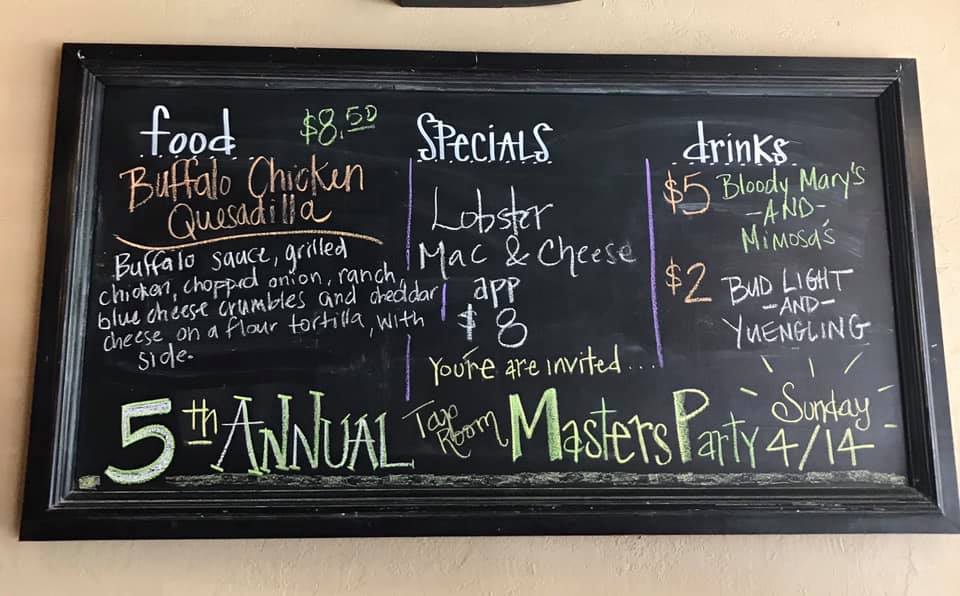 food $8.50
Buffalo Chicken
Quesadilla
Buffalo sauce, grilled
chicken, chopped onion, ranch,
blue cheese crumbles and cheddar
cheese on a flour tortilla, with
side.
SPECIALS
Lobster
Mac & Cheese
app
$8
drinks
$5 Bloody Mary's
-AND-
Mimosa's
$2 BUD LIGHT
-AND-
YUENGLING
You're are invited...
5th ANNUAL Tap Room Masters Party Sunday 4/14